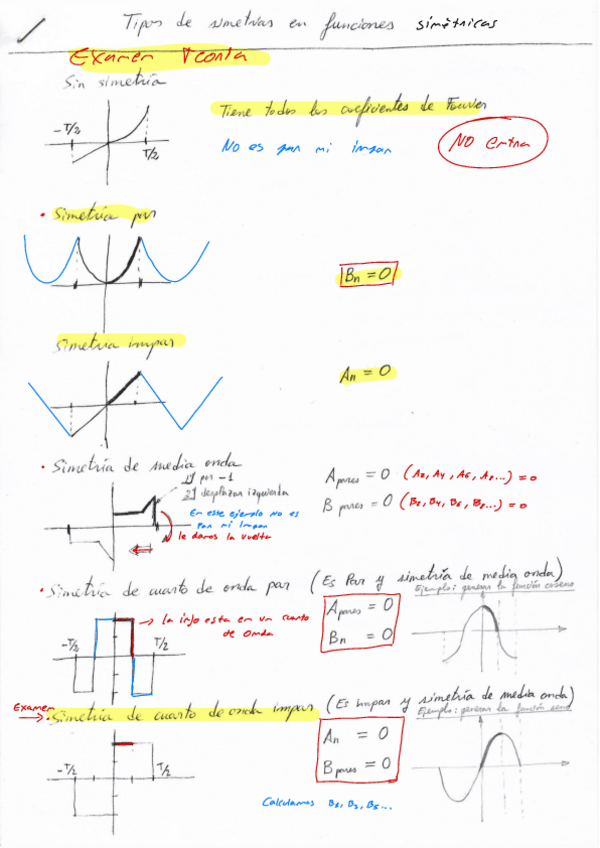 Tipos de simetrias en funciones simétricas
Examen Teoria
Sin simetría
Tiene todos los coeficientes de Fourier
-T/2
T/2
No es par ni impar
NO entra
• Simetría par
Bn = 0
Simetria impar
An = 0
• Simetría de media onda
1) por -1
2) desplazar izquierda
En este ejemplo no es
Par ni Impar
le damos la vuelta
A pares = 0 (A2, A4, A6, A8...) = 0
B pares = 0 (B2, B4, B6, B8...) = 0
• Simetría de cuarto de onda par (Es Par y simetría de media onda)
Ejemplo: generar la función coseno
-T/2
T/2
→ la info esta en un cuarto
de onda
A pares = 0
Bn = 0
Examen
→ • Simetría de cuarto de onda impar (Es Impar y simetría de media onda)
Ejemplo: generar la función seno
-T/2
T/2
An = 0
B pares = 0
Calculamos B1, B3, B5...